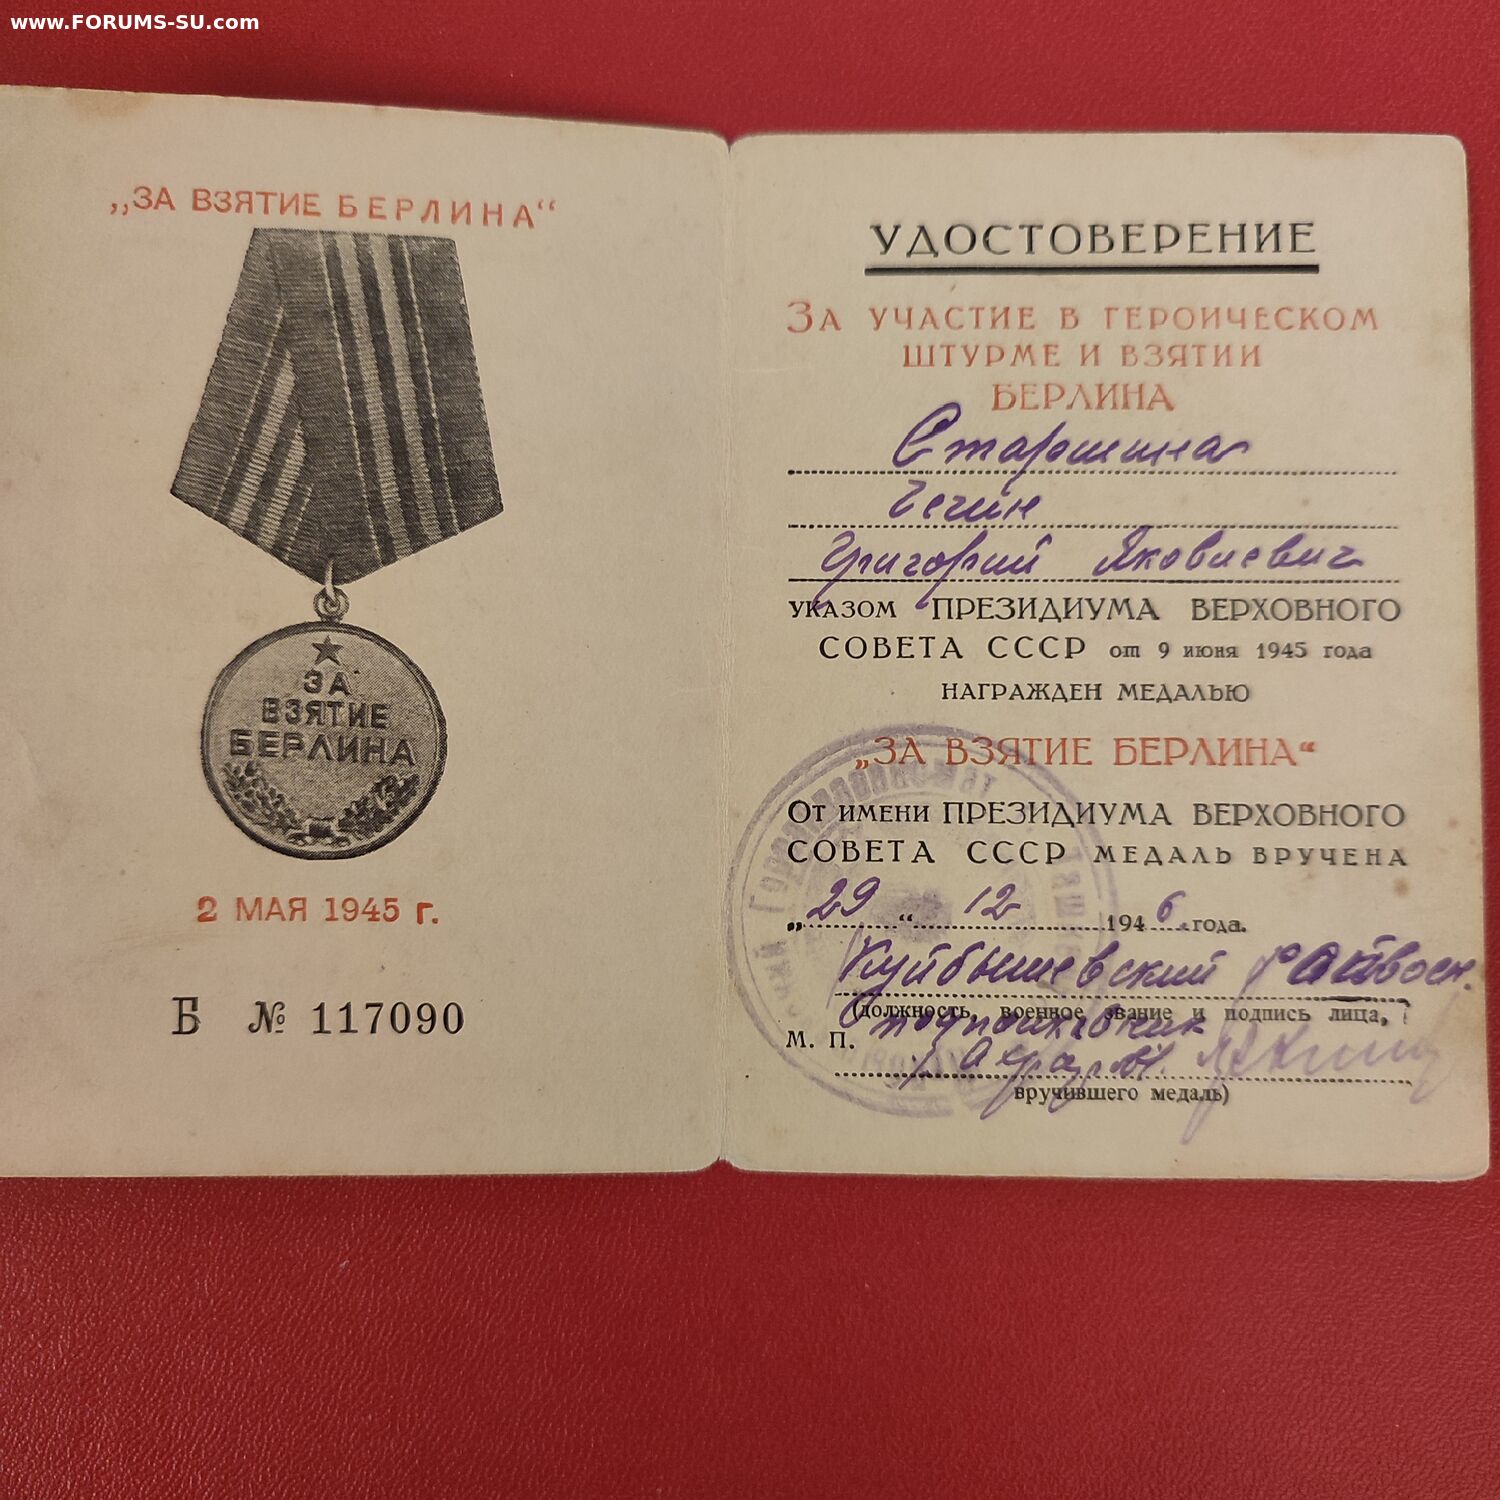 www.FORUMS-SU.com
„ЗА ВЗЯТИЕ БЕРЛИНА“
ЗА
ВЗЯТИЕ
БЕРЛИНА
2 МАЯ 1945 г.
Б № 117090
УДОСТОВЕРЕНИЕ
ЗА УЧАСТИЕ В ГЕРОИЧЕСКОМ
ШТУРМЕ И ВЗЯТИИ
БЕРЛИНА
Старшина
Чечин
Григорий Яковлевич
УКАЗОМ ПРЕЗИДИУМА ВЕРХОВНОГО
СОВЕТА СССР от 9 июня 1945 года
НАГРАЖДЕН МЕДАЛЬЮ
„ЗА ВЗЯТИЕ БЕРЛИНА“
ОТ ИМЕНИ ПРЕЗИДИУМА ВЕРХОВНОГО
СОВЕТА СССР МЕДАЛЬ ВРУЧЕНА
„29“ 12 1946 года.
Куйбышевский
(должность, военное звание и подпись лица,
подполковник
М. П.
вручившего медаль)